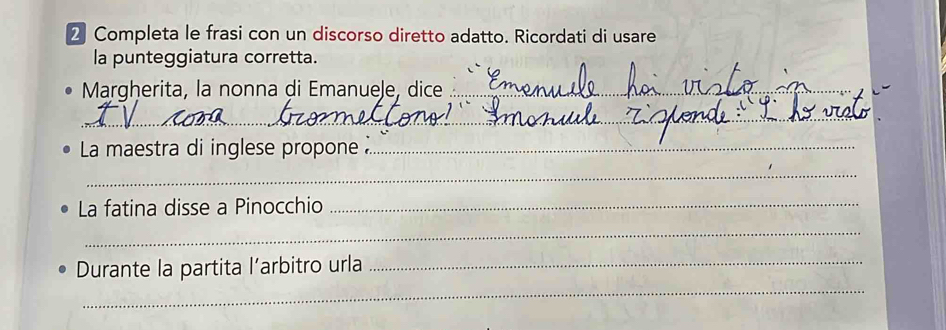 2 Completa le frasi con un discorso diretto adatto. Ricordati di usare
la punteggiatura corretta.
• Margherita, la nonna di Emanuele, dice : “Emanuele hai visto in
TV cosa trasmettono!” Emanuele risponde: “Sì ho visto”.
• La maestra di inglese propone :
• La fatina disse a Pinocchio
• Durante la partita l’arbitro urla